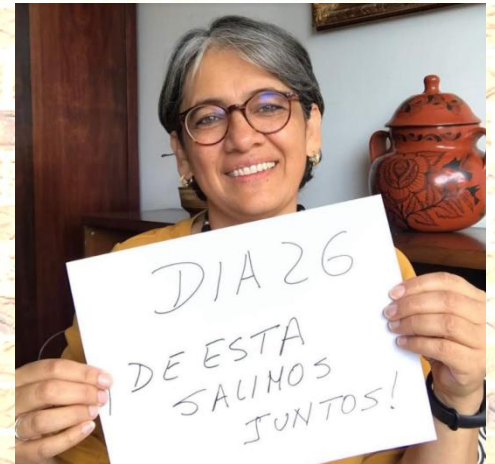 DIA 26
¡DE ESTA
SALIMOS
JUNTOS!